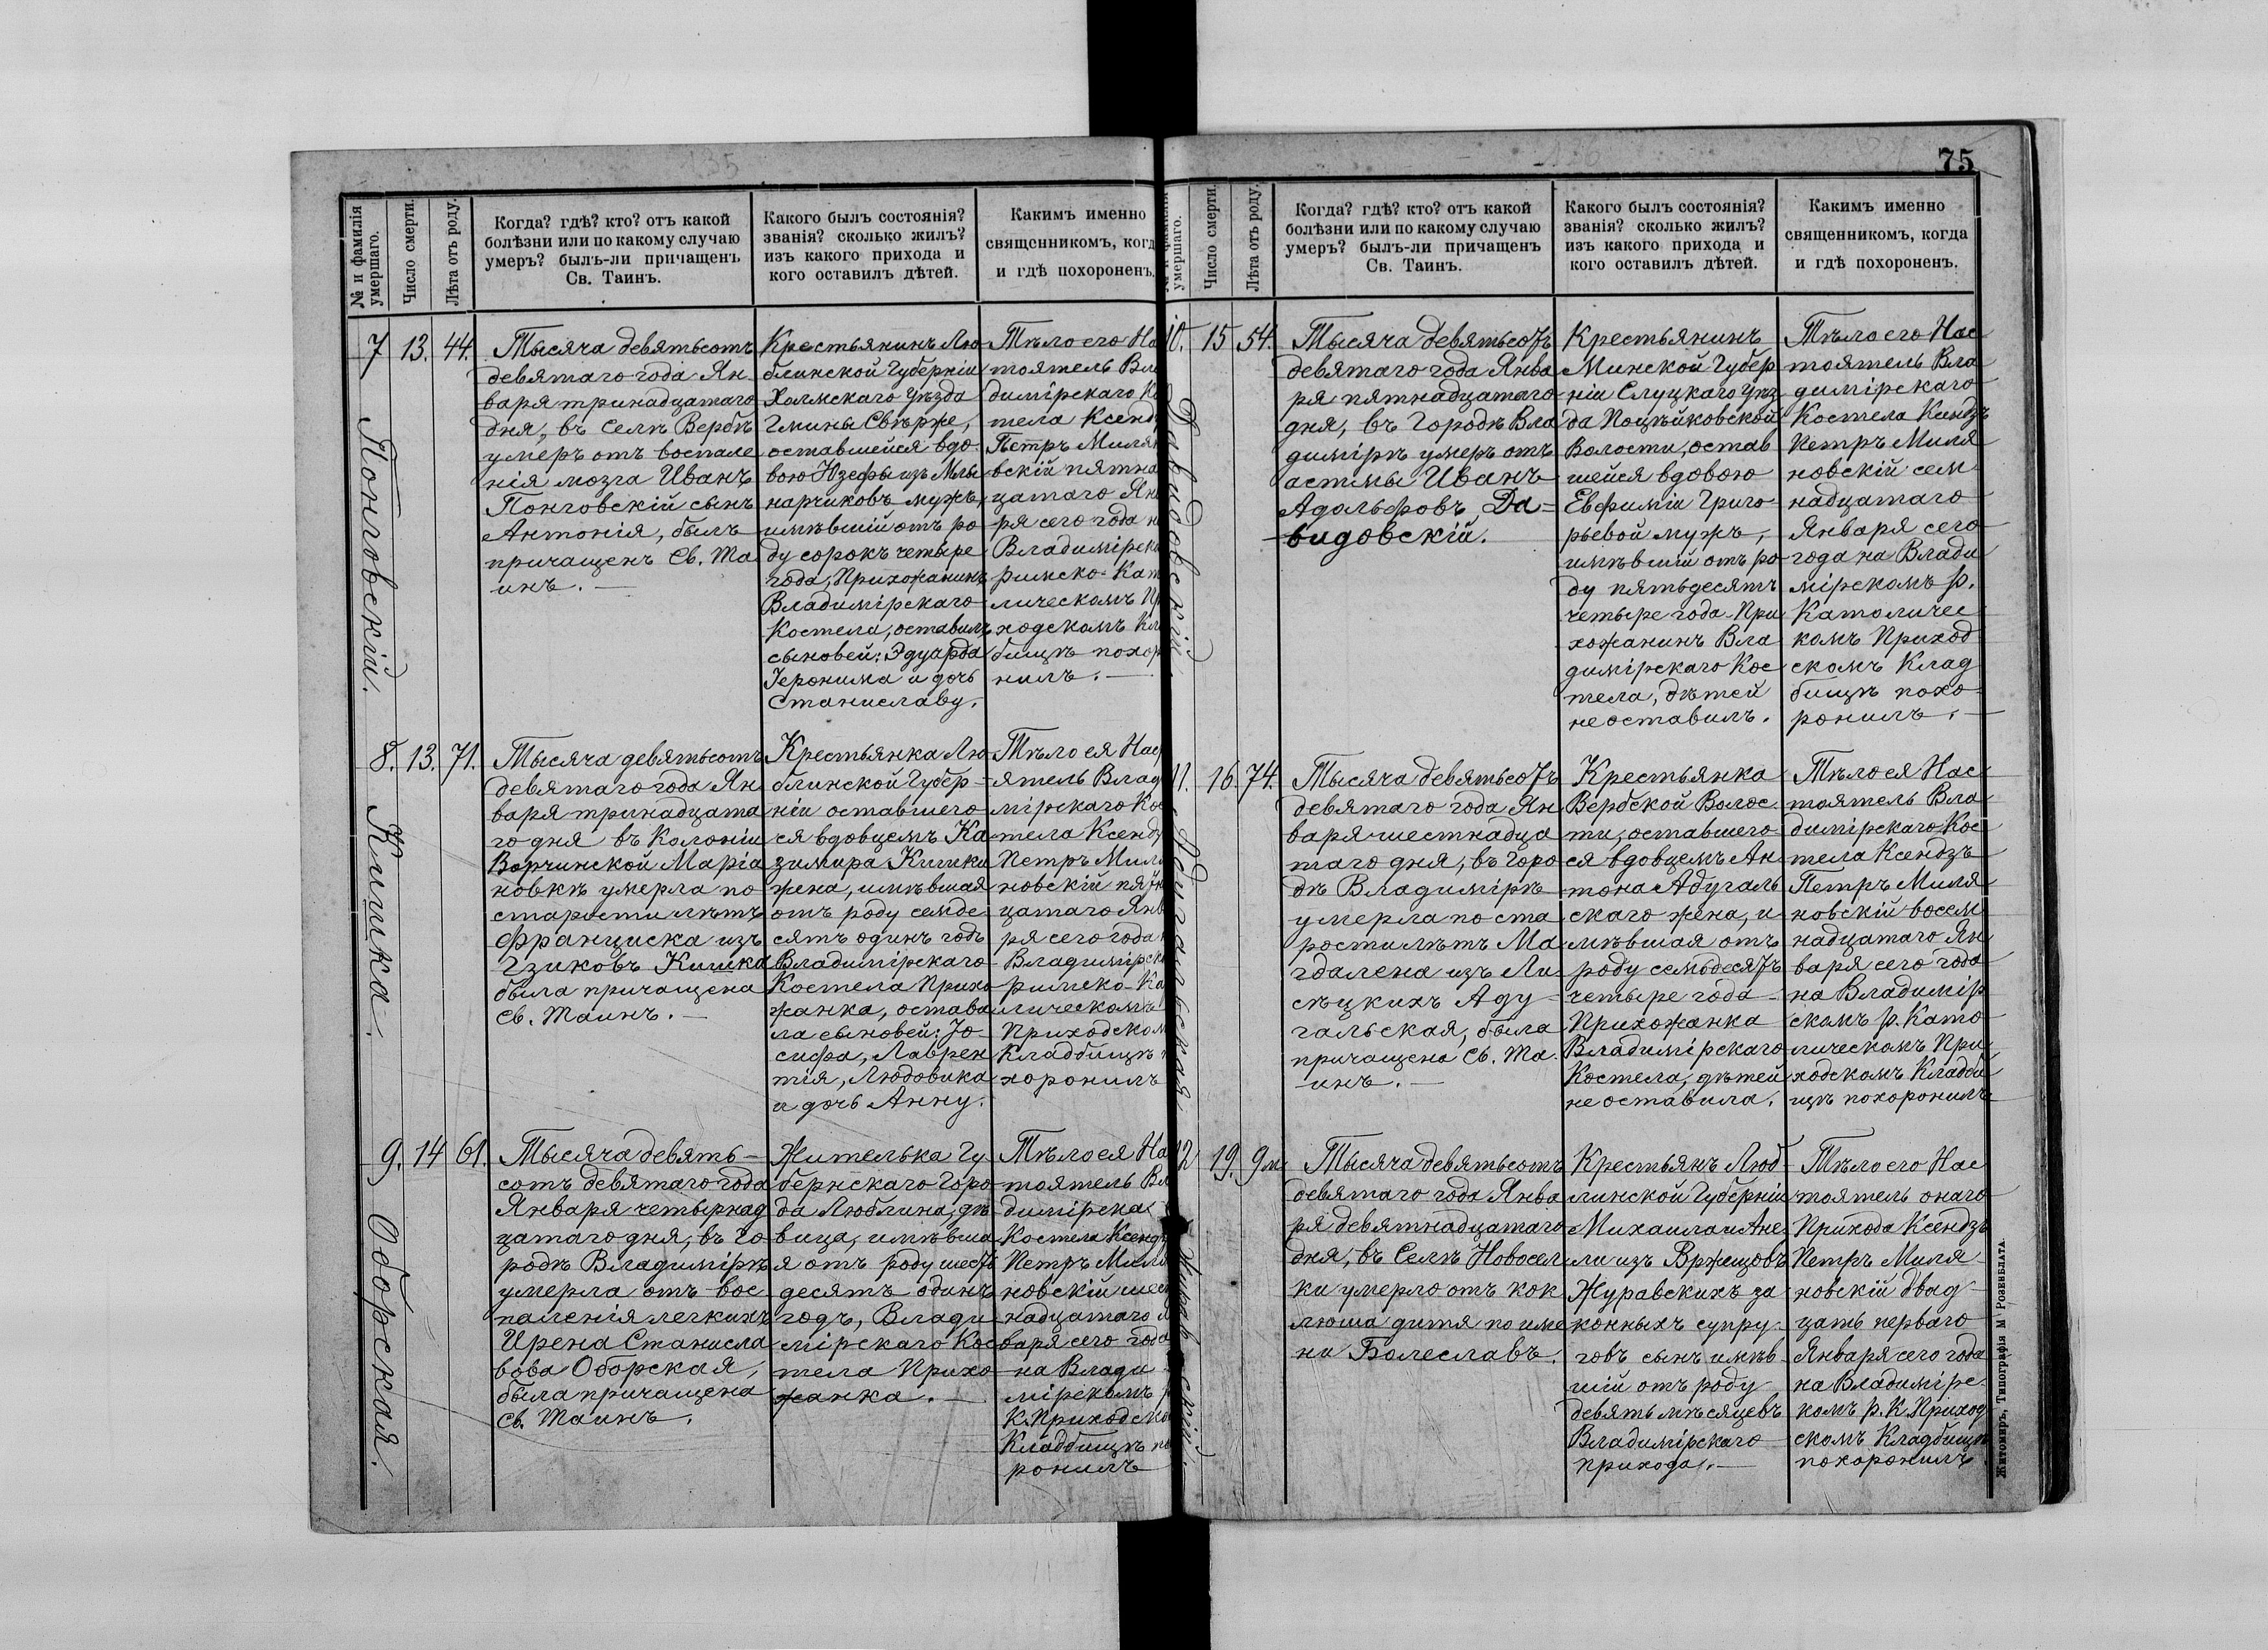 75
№ и фамилія умершаго.
Число смерти.
Лѣта отъ роду.
Когда? гдѣ? кто? отъ какой
болѣзни или по какому случаю
умеръ? былъ-ли причащенъ
Св. Таинъ.
Какого былъ состоянія?
званія? сколько жилъ?
изъ какого прихода и
кого оставилъ дѣтей.
Какимъ именно
священникомъ, когд
и гдѣ похороненъ.
7
Понговскій.
13.
44.
Тысяча девятьсотъ
девятаго года Ян
варя тринадцатаго
дня, въ Селѣ Вербѣ
умеръ отъ воспале
нія мозга Иванъ
Понговскій сынъ
Антонія, былъ
причащенъ Св. Та
инъ. —
Крестьянинъ Лю
блинской Губерніи
Холмскаго Уѣзда
Гмины Свѣрже,
оставшейся вдо
вою Юзефы изъ Млы
нарчиковъ мужъ,
имѣвшій отъ ро
ду сорокъ четыре
года, Прихожанинъ
Владимірскаго
Костела, оставилъ
сыновей: Эдуарда
Іеронима и дочь
Станиславу.
Тѣло его На
тоятель Вла
димірскаго Ко
тела Ксенд
Петръ Миля
вскій пятна
цатаго Ян
ря сего года н
Владимірско
римско-Кат
лическомъ Пр
ходскомъ Кла
бищѣ похор
нилъ. —
8.
Кишка.
13.
71.
Тысяча девятьсотъ
девятаго года Ян
варя тринадцата
го дня въ Колоніи
Ворчинской Маріа
новкѣ умерла по
старости лѣтъ
Франциска изъ
Гзиковъ Кишка
была причащена
Св. Таинъ. —
Крестьянка Лю
блинской Губер-
ніи оставшего
ся вдовцемъ Ка
зимира Кишки
жена, имѣвшая
отъ роду семде
сятъ одинъ годъ
Владимірскаго
Костела Прихо
жанка, остави
ла сыновей: Іо-
сифа, Лаврен
тія, Людовика
и дочь Анну.
Тѣло ея Нас
ятель Влад
мірскаго Кос
тела Ксендз
Петръ Миля
новскій пятн
цатаго Янв
ря сего года н
Владимірск
римско-Ка
лическомъ
Приходском
Кладбищѣ п
хоронилъ
9.
Оборская.
14
61.
Тысяча девять-
сотъ девятаго года
Января четырнад
цатаго дня, въ Го
родѣ Владимірѣ
умерла отъ вос
паленія легкихъ
Ирена Станисла
вова Оборская,
была причащена
Св. Таинъ.
Жителька Гу
бернскаго Горо
да Люблина, дѣ
вица, имѣвша
я отъ роду шестъ
десятъ одинъ
годъ, Влади
мірскаго Кос
тела Прихо
жанка. —
Тѣло ея На
тоятель Вл
димірска
Костела Ксендз
Петръ Миля
новскій шес
надцатаго Я
варя сего года
на Влади
мірскомъ р
К. Приходско
Кладбищѣ по
ронилъ
умершаго.
Число смерти.
Лѣта отъ роду.
Когда? гдѣ? кто? отъ какой
болѣзни или по какому случаю
умеръ? былъ-ли причащенъ
Св. Таинъ.
Какого былъ состоянія?
званія? сколько жилъ?
изъ какого прихода и
кого оставилъ дѣтей.
Какимъ именно
священникомъ, когда
и гдѣ похороненъ.
10.
Давидовскій.
15
54.
Тысяча девятьсотъ
девятаго года Янва
ря пятнадцатаго
дня, въ Городѣ Вла
димірѣ умеръ отъ
астмы Иванъ
Адольфовъ Да-
видовскій.
Крестьянинъ
Минской Губер
ніи Слуцкаго Уѣз
да Поцѣйковской
Волости, остав
шейся вдовою
Евфиміи Григо
рьевой мужъ,
имѣвшій отъ ро
ду пятьдесятъ
четыре года При
хожанинъ Вла
димірскаго Кос
тела, дѣтей
не оставилъ.
Тѣло его Нас
тоятель Вла
димірскаго
Костела Ксндзъ
Петръ Миля
новскій сем
надцатаго
Января сего
года на Влади
мірскомъ р.
Католичес
комъ Приход
скомъ Клад
бищѣ похо-
ронилъ. —
11.
Адугальская
16.
74.
Тысяча девятьсотъ
девятаго года Ян
варя шестнадца
таго дня, въ Горо
дѣ Владимірѣ
умерла по ста
рости лѣтъ Ма
гдалена изъ Ли
сѣцкихъ Аду-
гальская, была
причащена Св. Та
инъ. —
Крестьянка
Вербской Волос
ти, оставшего
ся вдовцемъ Ан
тона Адугаль
скаго жена, и
мѣвшая отъ
роду семьдесятъ
четыре года
Прихожанка
Владимірскаго
Костела, дѣтей
не оставила.
Тѣло ея Нас
тоятель Вла
димірскаго Кос
тела Ксендзъ
Петръ Миля
новскій восем
надцатаго Ян
варя сего года
на Владимір
скомъ р. Като
лическомъ При
ходскомъ Кладби
щѣ похоронилъ
12
19.
9 м.
Тысяча девятьсотъ
девятаго года Янва
ря девятнадцатаго
дня, въ Селѣ Новосел
ки умерло отъ кок
люша дитя по име
ни Болеславъ.
Крестьянъ Люб
линской Губерніи
Михаила и Ане
ли изъ Вржещовъ
Журавскихъ за
конныхъ супру-
говъ сынъ имѣв
шій отъ роду
девять мѣсяцевъ
Владимірскаго
прихода. —
Тѣло его Нас
тоятель онаго
Прихода Ксендзъ
Петръ Миля
новскій двад
цать перваго
Января сего года
на Владимірс
комъ р. К. Приход
скомъ Кладбищѣ
похоронилъ
Житомиръ, Типографія М Розенблата.